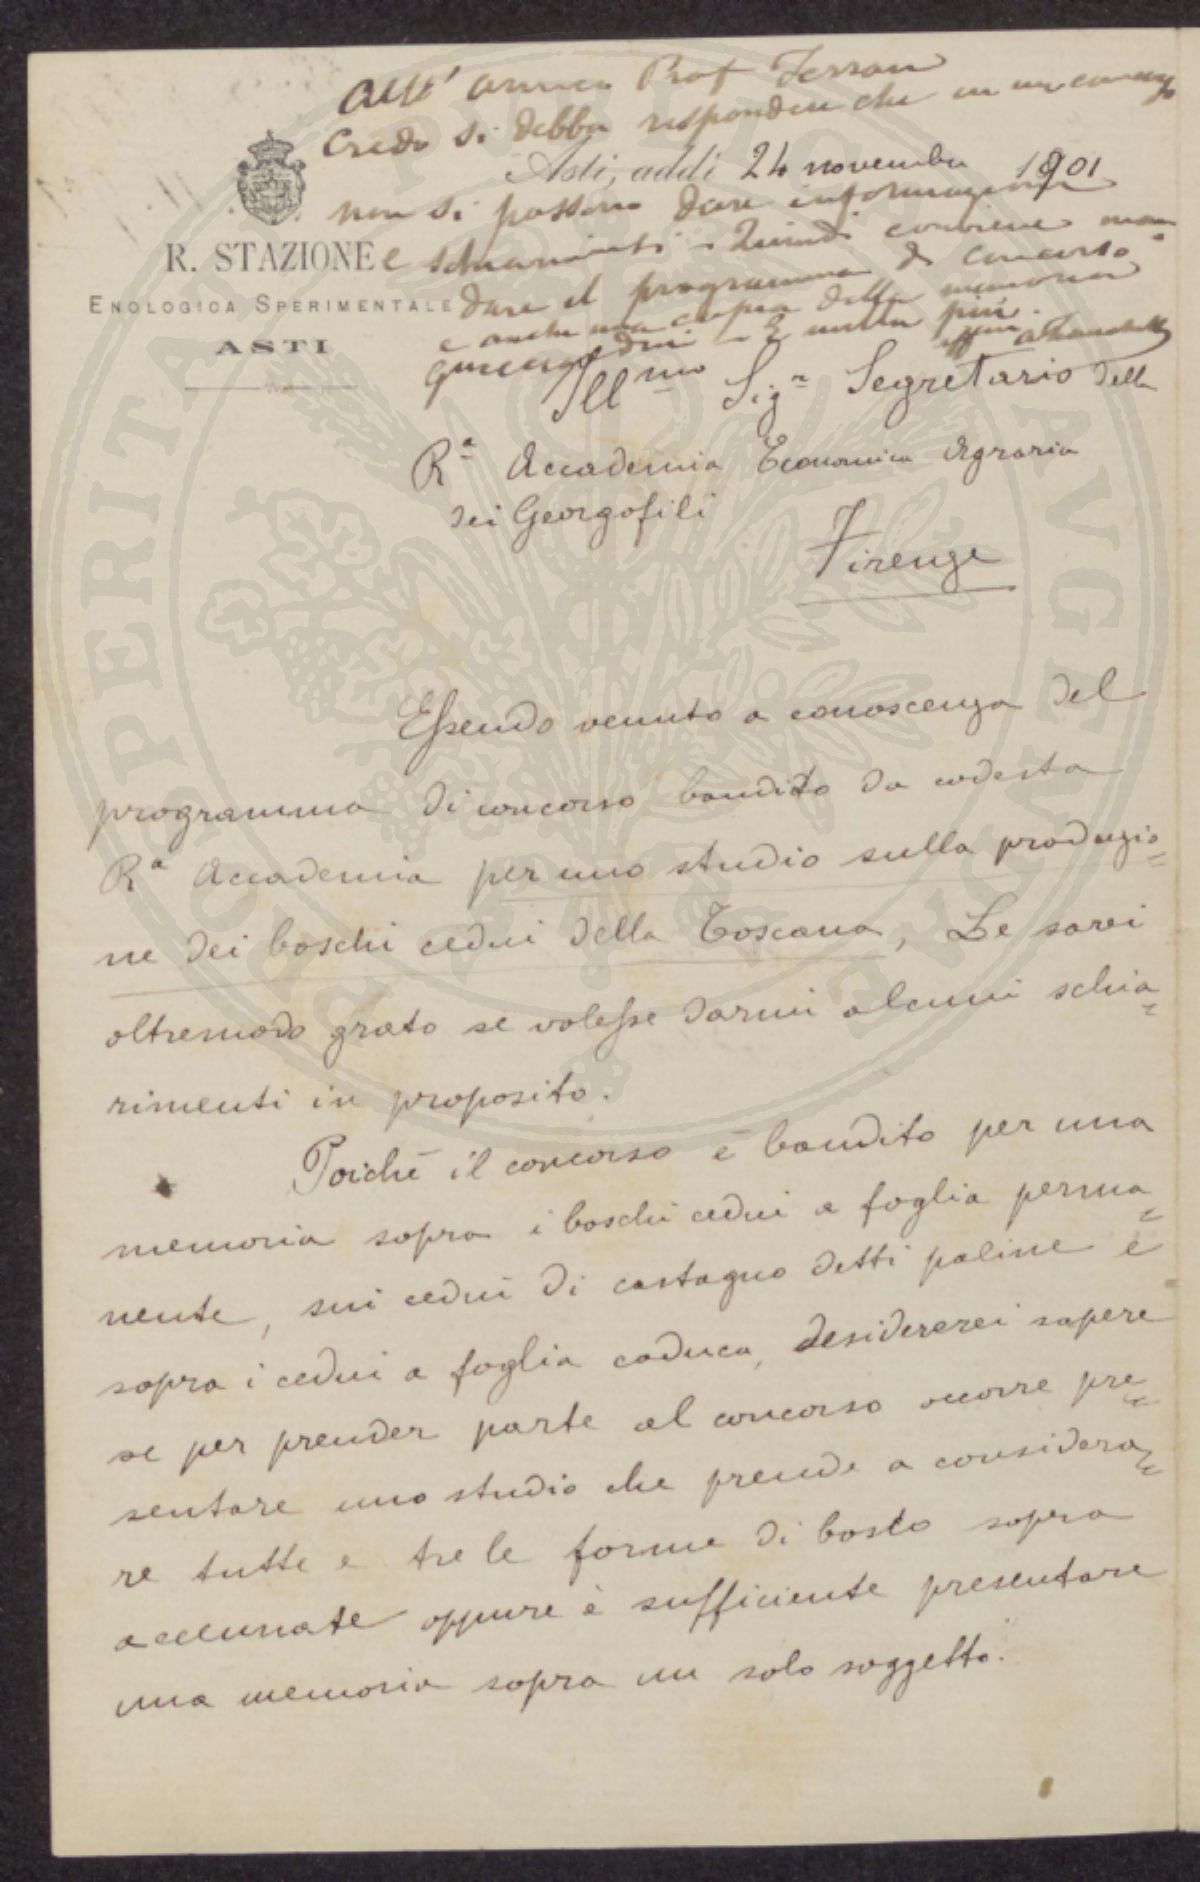 All' amico Prof
Credo si debba rispondere che in un concorso
Asti, addì 24 novembre 1901
non si possono dare informazioni
R. STAZIONE
e schiarimenti - Quindi conviene man=
ENOLOGICA SPERIMENTALE
dare il programma di concorso
ASTI
e anche una copia della memoria
E nulla più.
Ill.mo Sig.r Segretario della
R.a Accademia Economica Agraria
dei Georgofili
Firenze
Essendo venuto a conoscenza del
programma di concorso bandito da codesta
R.a Accademia per uno studio sulla produzio=
ne dei boschi cedui della Toscana, Le sarei
oltremodo grato se volesse darmi alcuni schia=
rimenti in proposito.
Poichè il concorso è bandito per una
memoria sopra i boschi cedui a foglia perma=
nente, sui cedui di castagno detti paline e
sopra i cedui a foglia caduca, desidererei sapere
se per prender parte al concorso occorre pre=
sentare uno studio che prende a considera=
re tutte e tre le forme di bosco sopra
accennate oppure è sufficiente presentare
una memoria sopra un solo soggetto.
PROSPERITATI PUBLICAE AUGENDAE